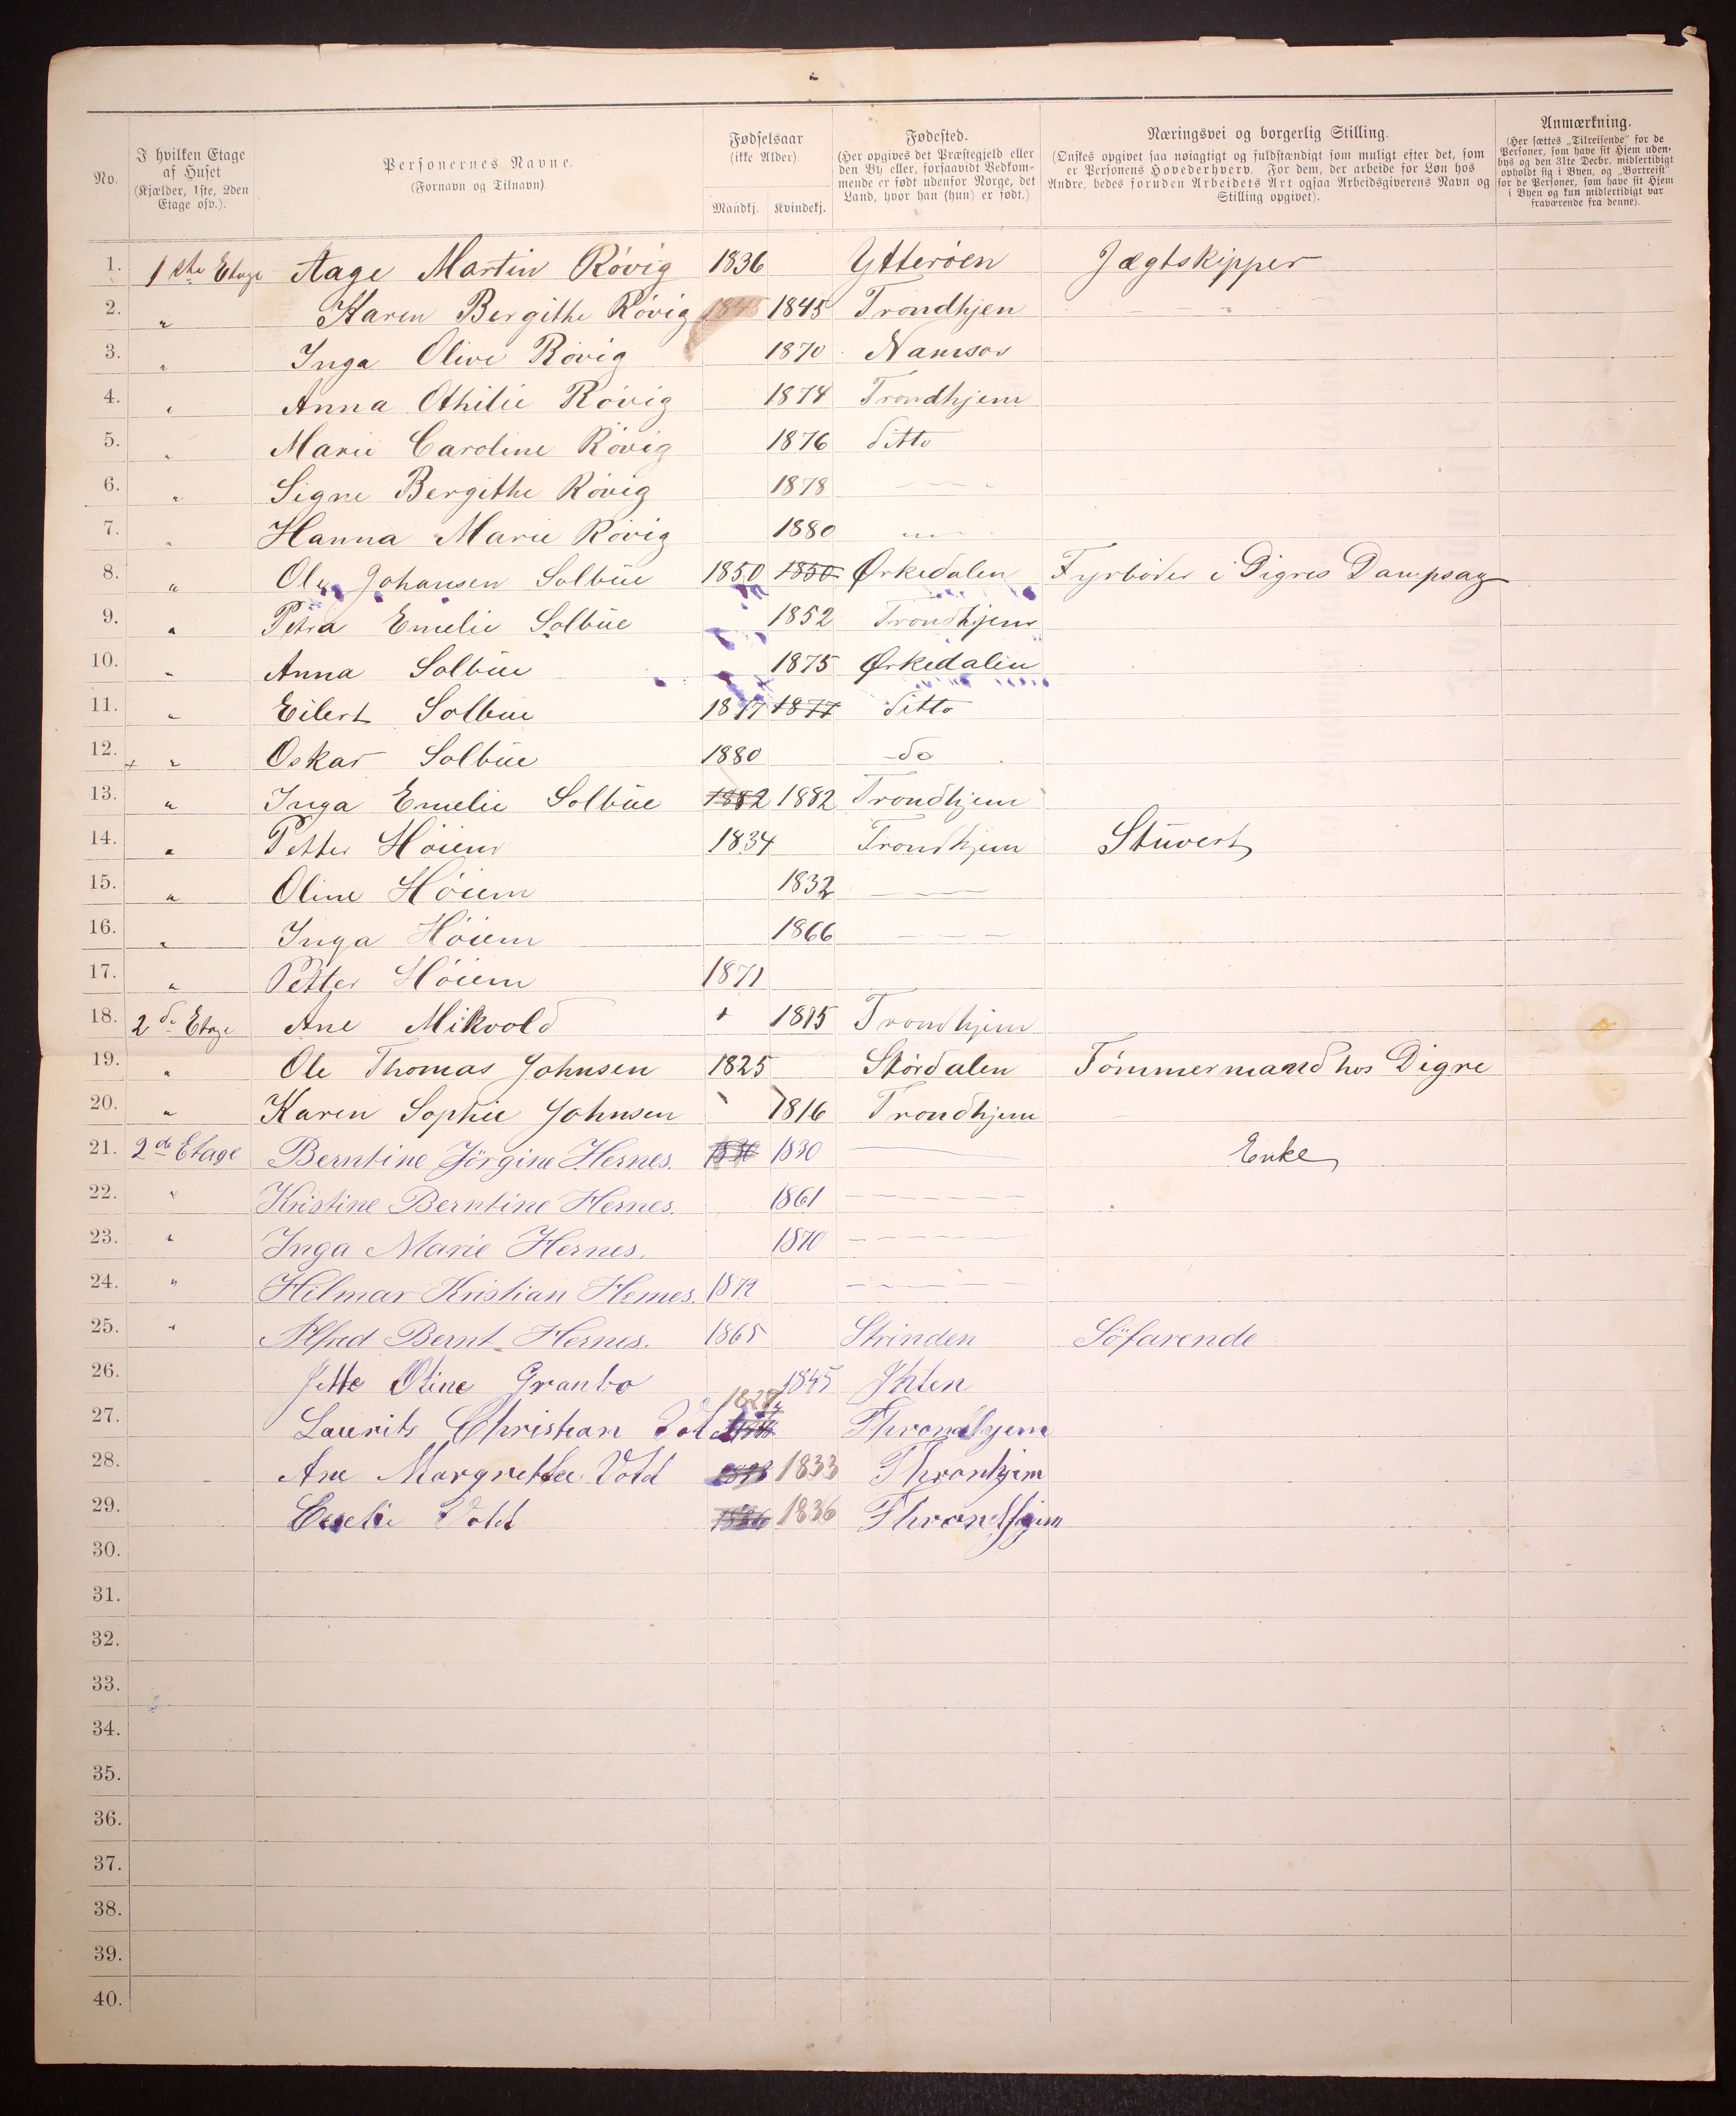 No.
I hvilken Etage af Huset (Kjælder, 1ste, 2den Etage osv.).
Personernes Navne. (Fornavn og Tilnavn)
Fødselsaar (ikke Alder) Mandkj. Kvindekj.
Fødested. (Her opgives det Præstegjeld eller den By eller, forsaavidt Vedkommende er født udenfor Norge, det Land, hvor han (hun) er født.)
Næringsvei og borgerlig Stilling. (Ønskes opgivet saa nøiagtigt og fuldstændigt som muligt efter det, som er Personens Hovederhverv. For dem, der arbeide for Løn hos Andre, bedes foruden Arbeidets Art ogsaa Arbeidsgiverens Navn og Stilling opgivet).
Anmærkning. (Her sættes „Tilreisende" for de Personer, som have sit Hjem udenbys og den 31te Decbr. midlertidigt opholdt sig i Byen, og „Bortreist" for de Personer, som have sit Hjem i Byen og kun midlertidigt var fraværende fra denne).
1. 1ste Etage Aage Martin Rövig 1836 Ytteröen Jægtskipper
2. " Karen Bergithe Rövig 1845 1845 Trondhjen
3. " Inga Olive Rövig 1870 Namsos
4. " Anna Othilie Rövig 1874 Trondhjem
5. " Marie Caroline Rövig 1876 ditto
6. " Signe Bergithe Rövig 1878 — —
7. " Hanna Marie Rövig 1880 —
8. " Ole Johansen Solbüe 1850 1850 Ørkedalen Fyrböder i Digres Dampsag
9. " Petra Emelie Solbüe 1852 Trondhjem
10. " Anna Solbüe 1875 Ørkedalen
11. " Eilert Solbüe 1877 1877 ditto
12. + " Oskar Solbüe 1880 do
13. " Inga Emelie Solbüe 1882 1882 Trondhjem
14. " Petter Höiem 1834 Trondhjem Stüvert
15. " Oline Höiem 1832 — —
16. " Inga Höiem 1866 — — —
17. " Petter Höiem 1871
18. 2de Etage Ane Mikvold + 1815 Trondhjem
19. " Ole Thomas Johnsen 1825 Stördalen Tömmermand hos Digre
20. " Karen Sophie Johnsen 1816 Trondhjem
21. 2de Etage Berntine Jörgine Hernes. 1830 1830 — Enke
22. " Kristine Berntine Hernes. 1861 — — — —
23. " Inga Marie Hernes. 1870 — — — —
24. " Hilmar Kristian Hernes. 1872 — — — —
25. " Alfred Bernt Hernes. 1865 Strinden Söfarende
26. Jette Otine Granbo 1845
27. Laurits Christian Vold 1827 Throndhjem
28. Ane Margrethe Vold 1833 Thronhjem
29. Vold 1836 Throndhjem
30.
31.
32.
33.
34.
35.
36.
37.
38.
39.
40.